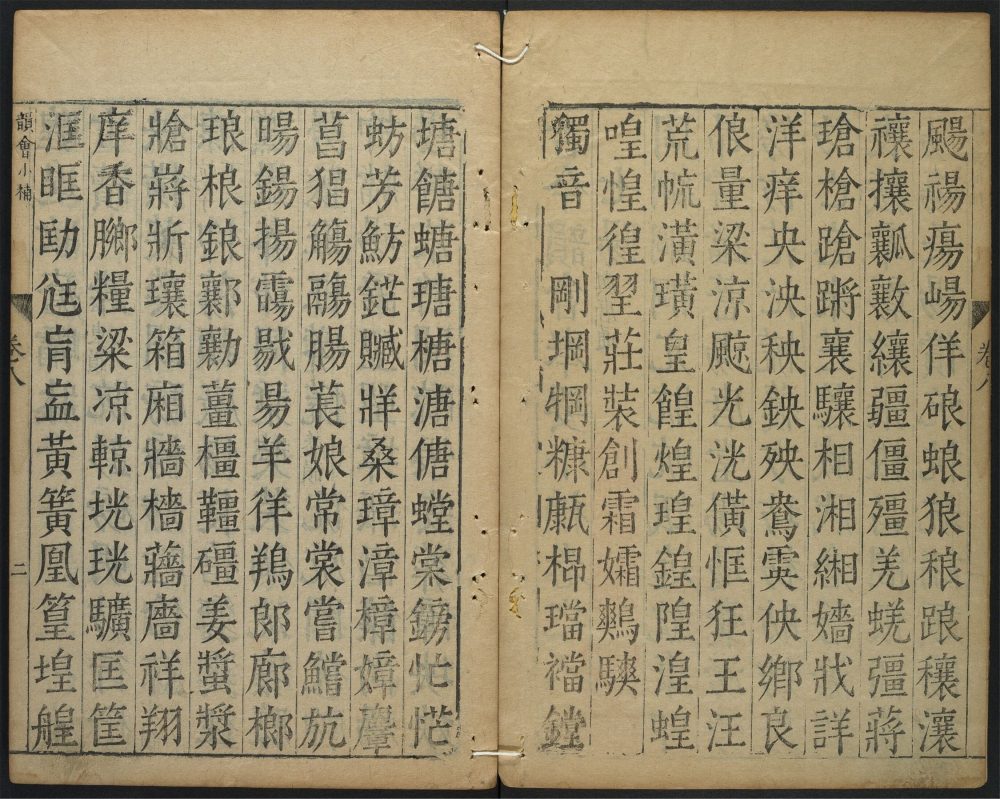 颺禓瘍崵佯硠蜋狼稂踉穰瀼
禳攘瓤纕疆僵殭羌蜣彊蔣
瑲槍蹌蹡襄驤相湘緗嬙戕詳
洋痒央泱秧鉠殃鴦霙佒鄉良
俍量梁涼飉光洸僙恇狂王汪
荒㡃潢璜皇餭煌瑝鍠隍湟蝗
喤惶徨莊裝創霜孀鷞騻
獨音 剛堈犅糠璫襠鏜
卷八
塘餹螗瑭榶溏傏螳棠鎊忙恾
蚄芳魴鋩贓牂桑璋漳樟嫜麞
菖猖觴鬺腸萇娘常裳嘗鱨斻
暘鍚揚霷昜羊徉鴹郎廊榔
琅桹鋃勷薑橿韁礓姜螿漿
牄將斨瓖箱廂牆檣蘠廧祥翔
庠香膷糧粱凉輬垙珖匡筐
洭眶劻尪肓衁黃簧凰篁堭艎
韻會小補 卷八 二